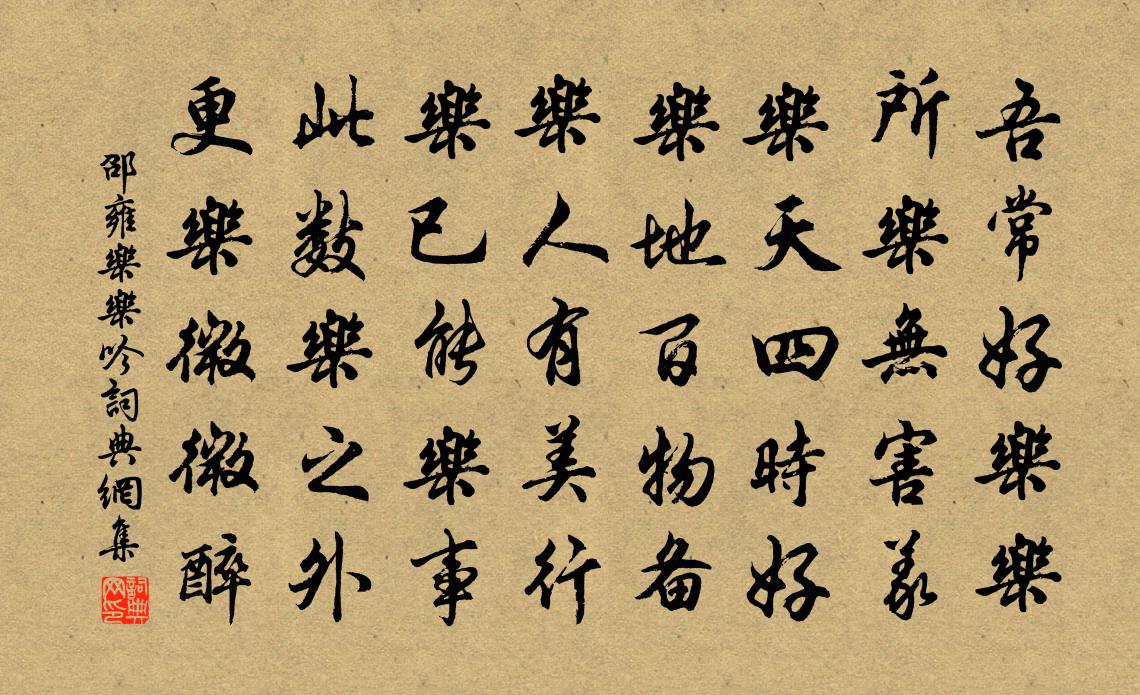 吾常好樂樂
所樂無害義
樂天四時好
樂地百物备
樂人有美行
樂已能樂事
此数樂之外
更樂微微醉
邵雍樂樂吟詞典網集
詞典网印